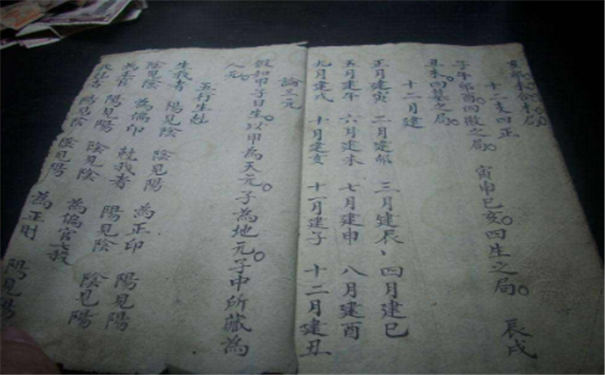 十二支四正
子午卯酉。四敗之局。 寅申巳亥。四生之局。 辰戌
丑未。四墓之局。
十二月建
正月建寅 二月建卯 三月建辰、四月建巳
五月建午 六月建未 七月建申 八月建酉
九月建戌 十月建亥 十一月建子 十二月建丑
論三元
假如甲子日生。以甲為天元。子為地元。子中所藏為
人元。
五行生剋
生我者 陽見陰 陰見陽 為正印 陽見陽
陰見陰 為偏印 剋我者 陽見陰 陰見陽
為正官 陽見陽 陰見陰 為偏官七殺
陽見陰 陰見陽 為正財 陽見陽